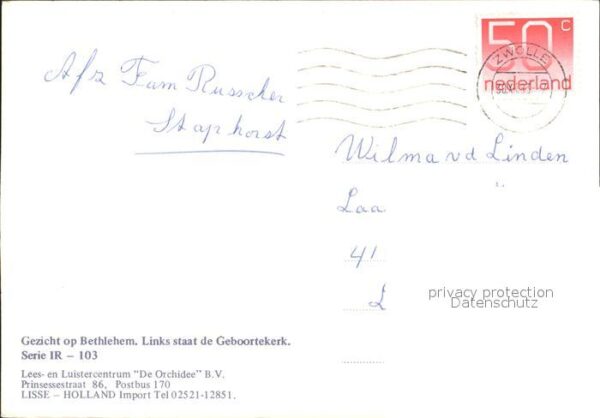 50 c
nederland
ZWOLLE
Afz Fam Russcher
Staphorst
Wilma vd Linden
Laa
41
L
privacy protection
Datenschutz
Gezicht op Bethlehem. Links staat de Geboortekerk.
Serie IR – 103
Lees- en Luistercentrum "De Orchidee" B.V.
Prinsessestraat 86, Postbus 170
LISSE – HOLLAND Import Tel 02521-12851.